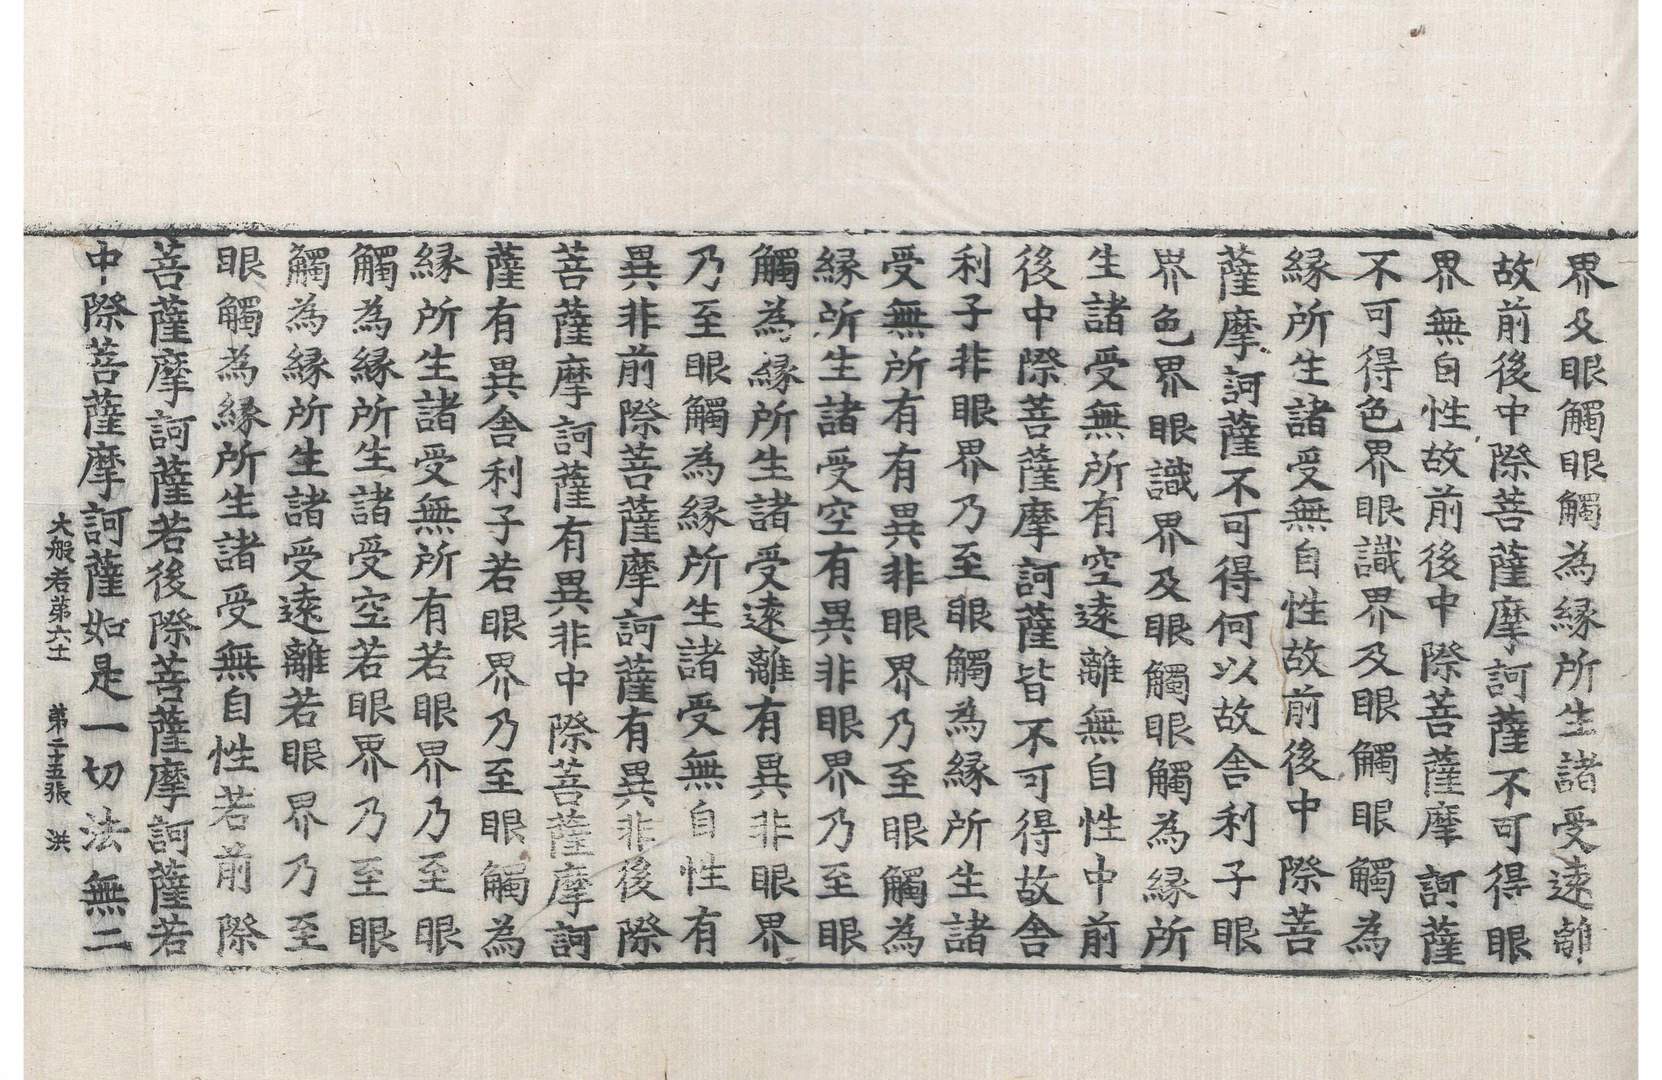 界及眼觸眼觸為緣所生諸受遠離
故前後中際菩薩摩訶薩不可得眼
界無自性故前後中際菩薩摩訶薩
不可得色界眼識界及眼觸眼觸為
緣所生諸受無自性故前後中際菩
薩摩訶薩不可得何以故舍利子眼
界色界眼識界及眼觸眼觸為緣所
生諸受無所有空遠離無自性中前
後中際菩薩摩訶薩皆不可得故舍
利子非眼界乃至眼觸為緣所生諸
受無所有有異非眼界乃至眼觸為
緣所生諸受空有異非眼界乃至眼
觸為緣所生諸受遠離有異非眼界
乃至眼觸為緣所生諸受無自性有
異非前際菩薩摩訶薩有異非後際
菩薩摩訶薩有異非中際菩薩摩訶
薩有異舍利子若眼界乃至眼觸為
緣所生諸受無所有若眼界乃至眼
觸為緣所生諸受空若眼界乃至眼
觸為緣所生諸受遠離若眼界乃至
眼觸為緣所生諸受無自性若前際
菩薩摩訶薩若後際菩薩摩訶薩若
中際菩薩摩訶薩如是一切法無二
大般若第六十 第二十五張 洪